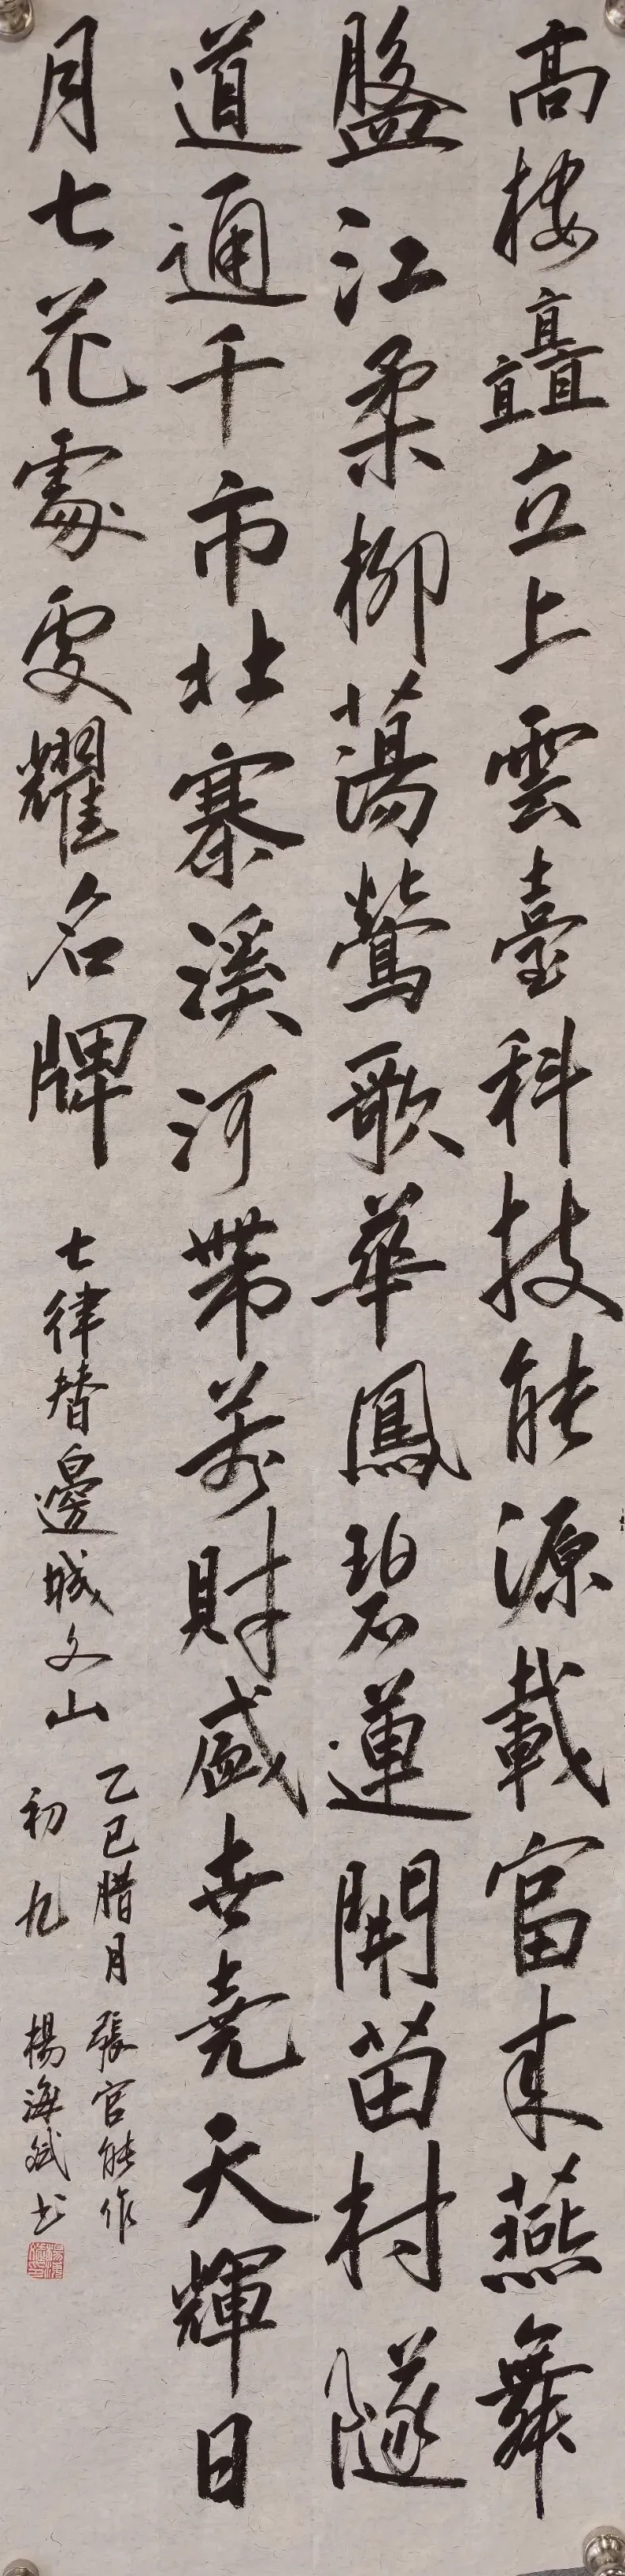 高楼矗立上雲臺科技能源載富来燕舞
盤江柔柳蕩鶯歌華鳳碧蓮開苗村隧
道通千市壮寨溪河帶萬財盛世堯天輝日
月七花處處耀名牌
七律替邊城文山
乙巳腊月
初九
張官能作
楊海斌书